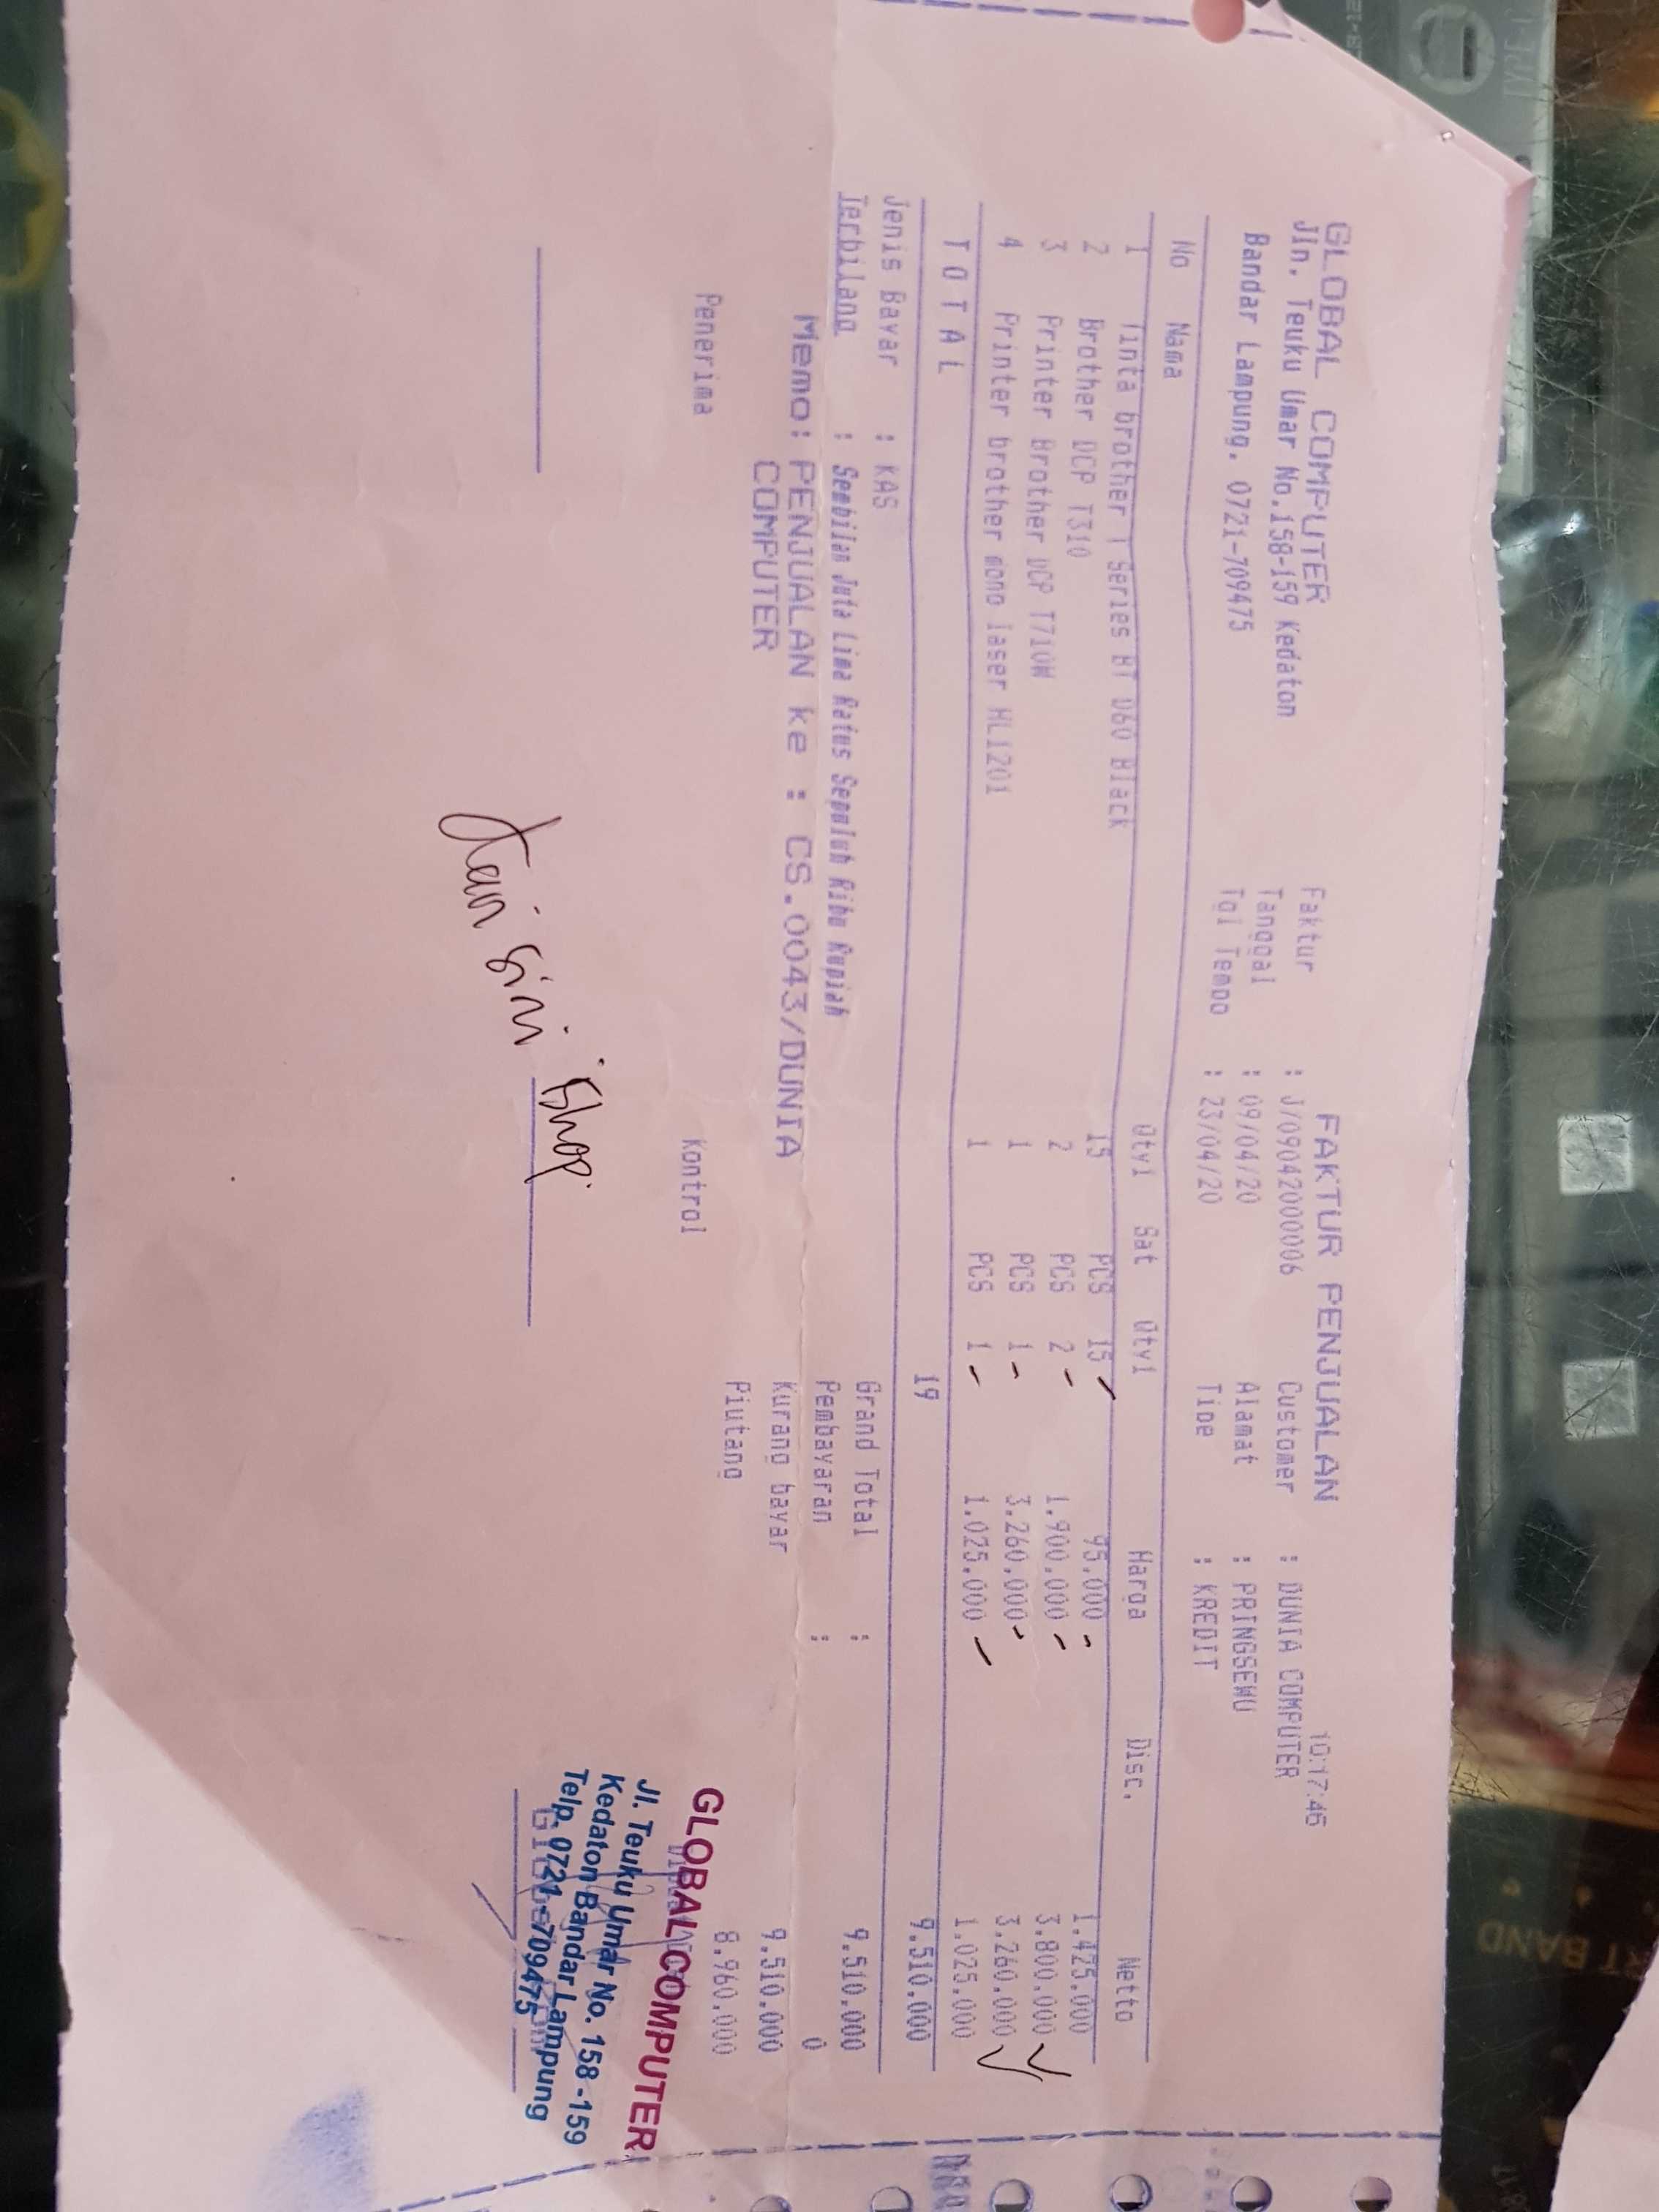 GLOBAL COMPUTER FAKTUR PENJUALAN 10:17:46
Jln. Teuku Umar No.158-159 Kedaton Faktur : J/090420000006 Customer : DUNIA COMPUTER
Bandar Lampung. 0721-709475 Tanggal : 09/04/20 Alamat : PRINGSEWU
Tgl Tempo : 23/04/20 Tipe : KREDIT
No Nama Qty1 Sat Qty1 Harga Disc. Netto
1 Tinta brother T Series BT D60 Black 15 PCS 15 95.000 1.425.000
2 Brother DCP T310 2 PCS 2 1.900.000 3.800.000
3 Printer Brother DCP T710W 1 PCS 1 3.260.000 3.260.000
4 Printer brother mono laser HL1201 1 PCS 1 1.025.000 1.025.000
T O T A L 19 9.510.000
Jenis Bayar : KAS Grand Total : 9.510.000
Terbilang : Sembilan Juta Lima Ratus Sepuluh Ribu Rupiah Pembayaran : 0
Memo: PENJUALAN ke : CS.0043/DUNIA Kurang bayar 9.510.000
COMPUTER Piutang 8.960.000
Penerima Kontrol
GLOBAL COMPUTER
Jl. Teuku Umar No. 158 -159
Kedaton Bandar Lampung
Telp. 0721 - 709475
shop
RT BAND